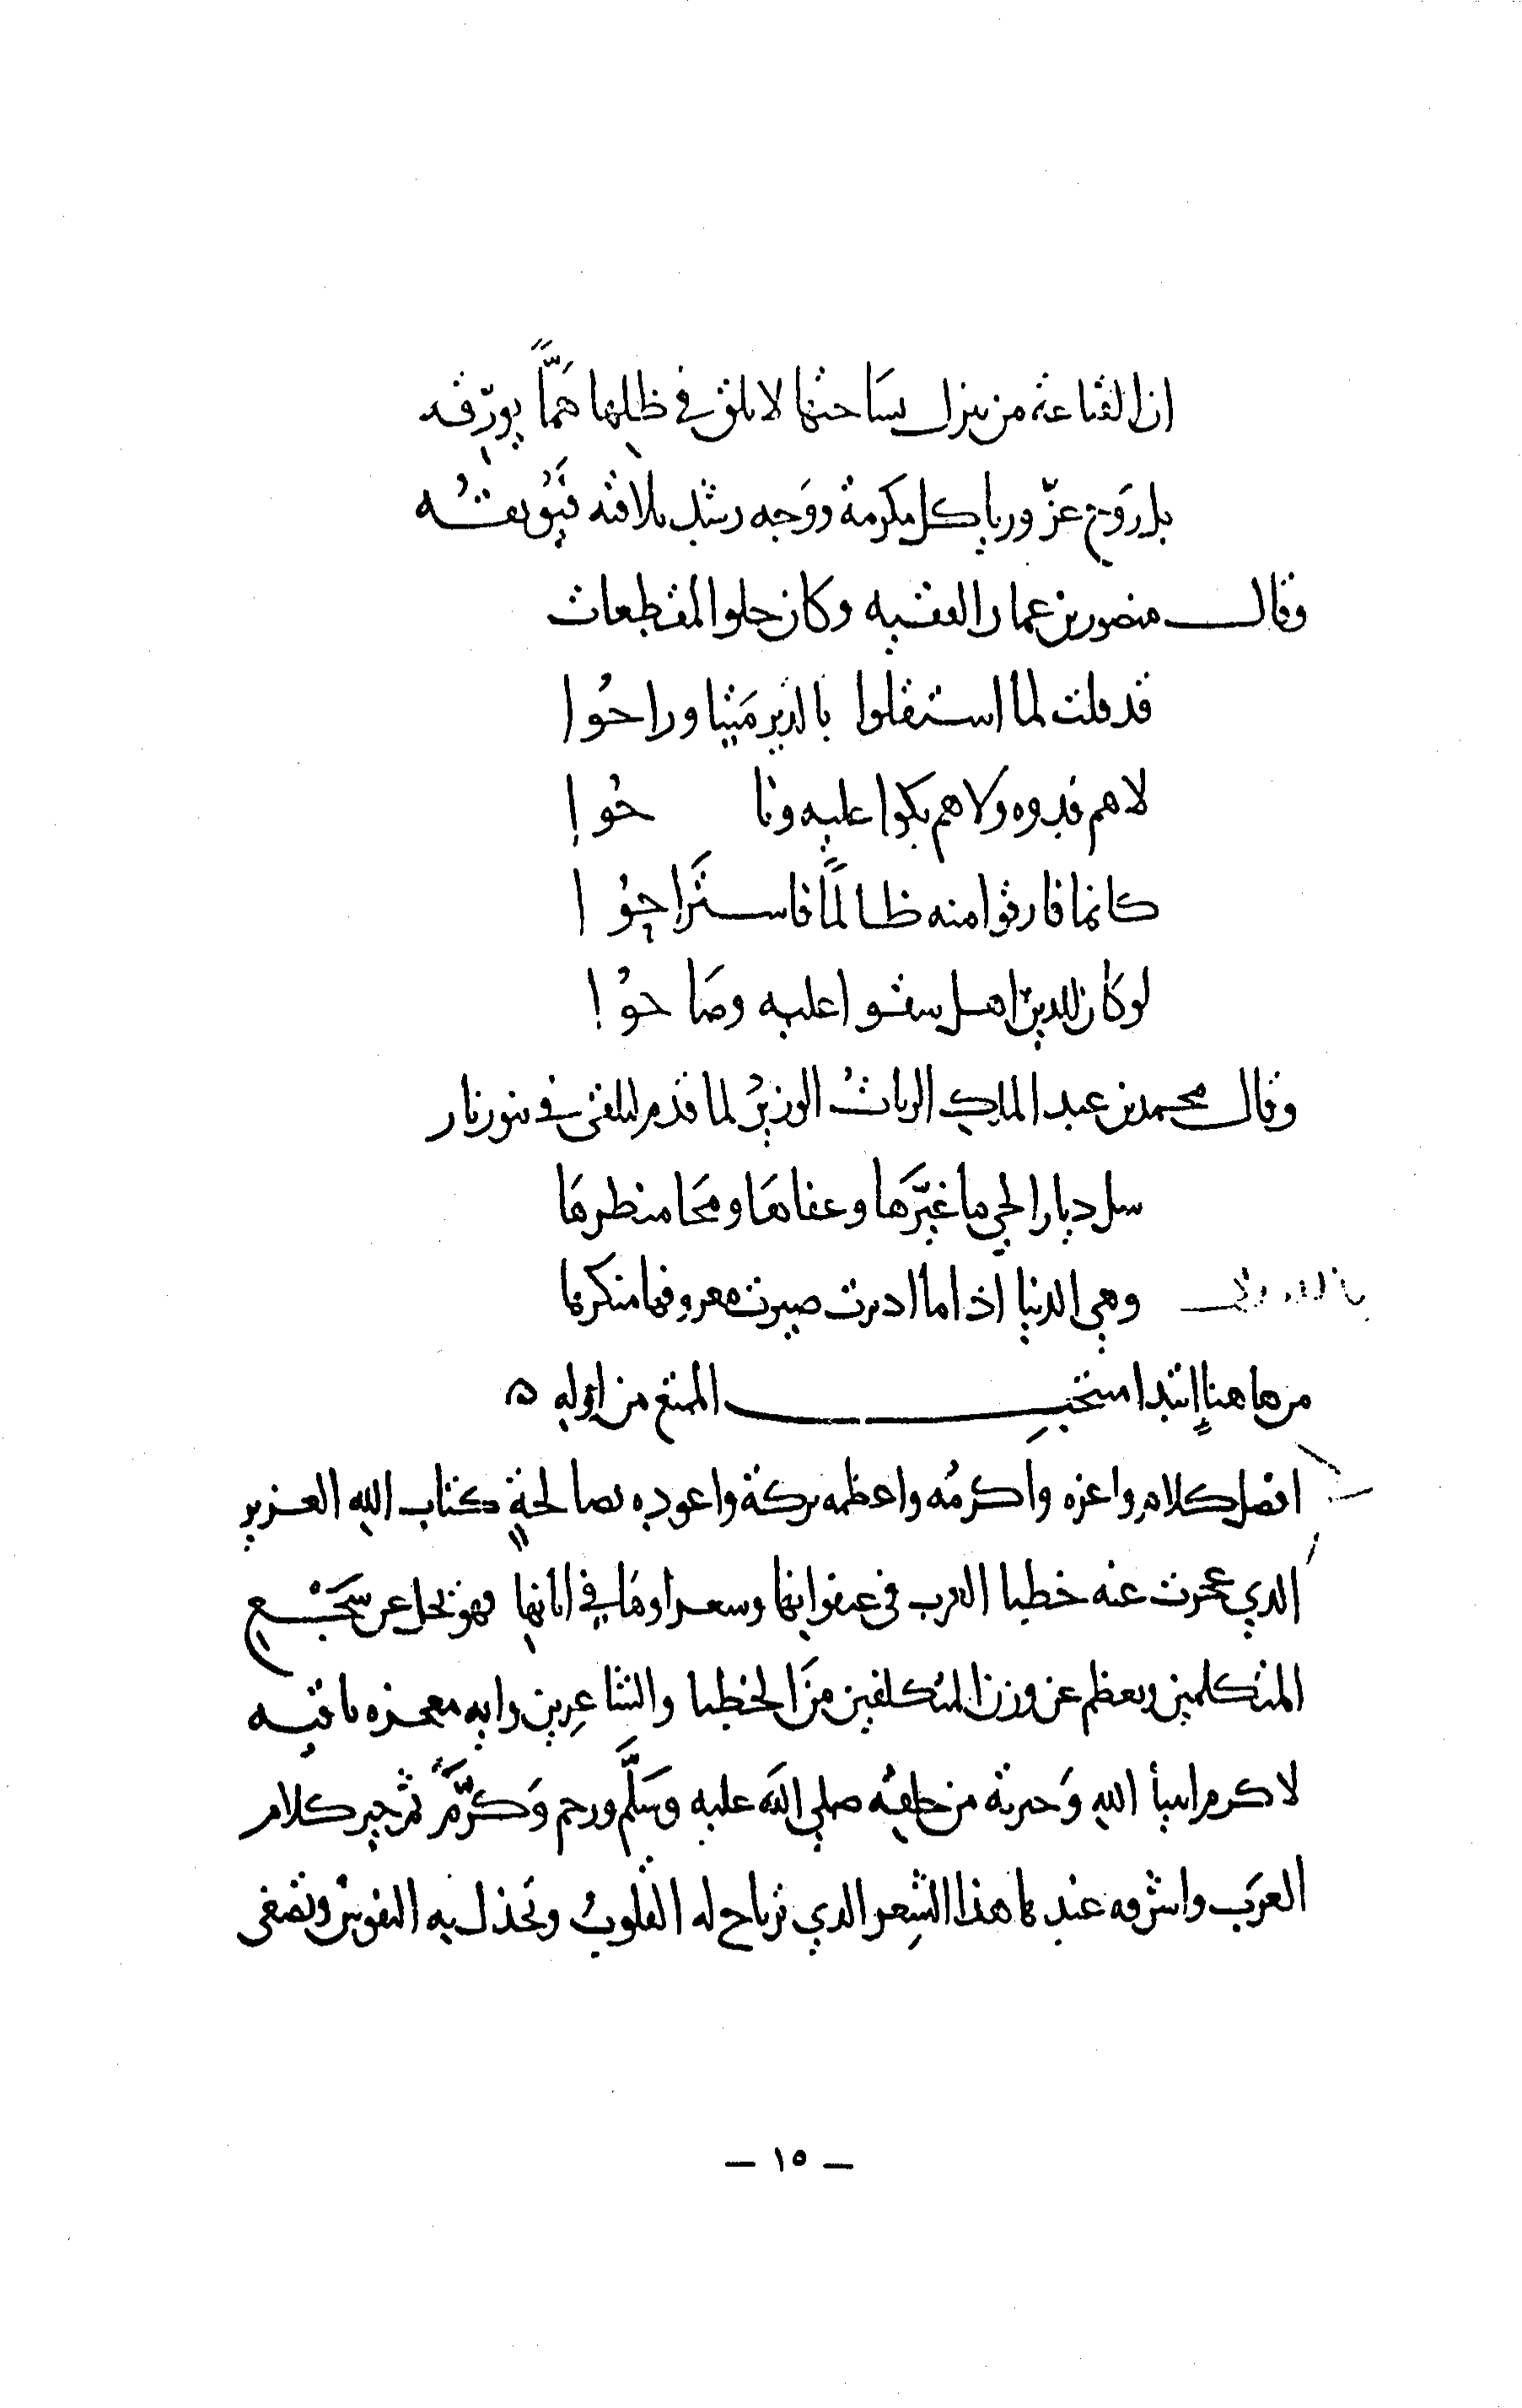 ان القناعة من ينزل بسَاحتها لا يلق في ظلها هَمًّا يورّقه
بل رَوح عزّ وريا كل مكرمة ووَجه رشد يلاقيه
وقال منصور بن عمار الفقيه وكان حلو المقطعات
قد قلت لما استقلوا بالدير مَيتا وراحُوا
لا هم فدوه ولا هم بكوا عليه ونا حُوا
كانما فارقوا منه ظالمًا فاستَراحُوا
لو كان للدين اهل سقوا عليه وصَاحُوا
وقال محمد بن عبد الملك الزيات الوزيرُ لما قدم ليلقى في تنور نار
سل ديار الحي ما غيّرَها وعفاهَا ومحَا منظرهَا
وهي الدنيا اذا ما ادبرت صيرت معروفها منكرها
من هاهنا ابتدا منتخب الممتع من اوله ه
افضل كلام واعزه واكرمُه واعظمه بركة واعوده بصالحةٍ كتاب الله العزيز
الذي عجزت عنه خطبا العرب في وشعراوهَا في فهو يجل عن سَجْع
المتكلمين ويعظم عن وزن المتكلفين منَ الخطبا والشاعِرين وايه معجزه باقيه
لاكرم انبيأ الله وَخيرته من خلقه صلي الله عليه وَسَلَّم ورحم وَكرَّمَ ثم خير كلام
العرَب واشرفه عندنا هذا الشِعر الذي ترتاح له القلوبُ وتجذل به النفوسُ وتصغى
– ١٥ –